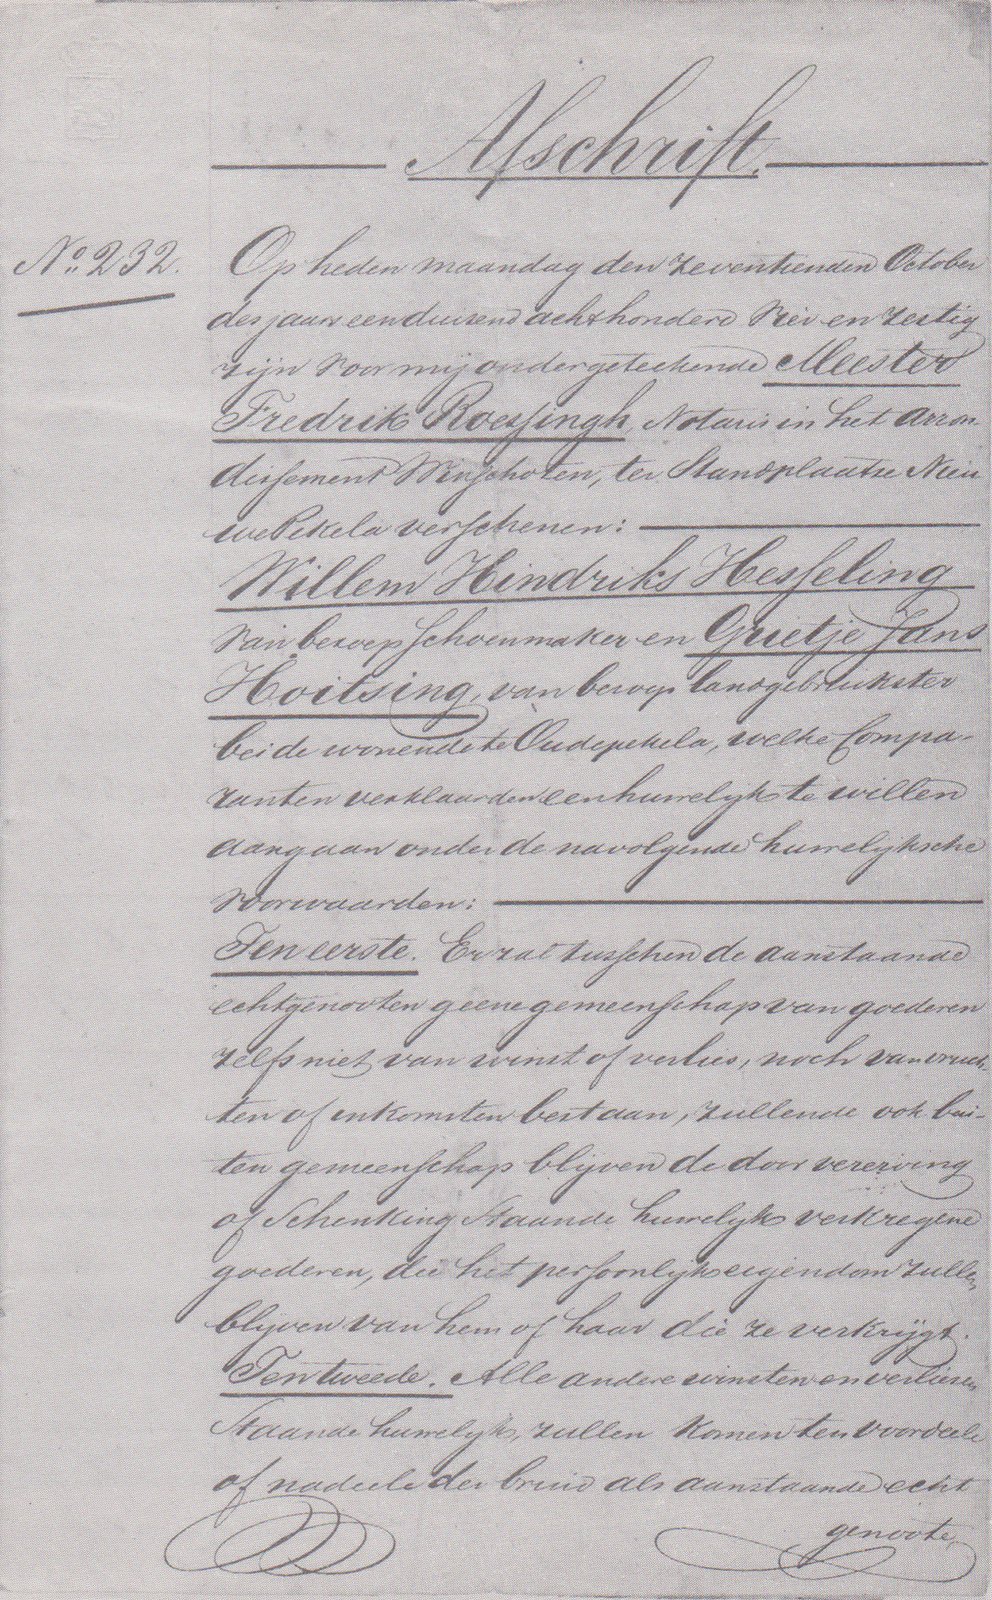 Afschrift.
No. 232.
Op heden maandag den zeventienden October
des jaars eenduizend achthonderd vier en zestig
zijn voor mij ondergeteekende Meester
Fredrik Roessingh, Notaris in het arron
dissement Winschoten, ter Standplaatse Nieu
we Pekela verschenen:
Willem Hindriks Hesseling
van beroep schoenmaker en Grietje Jans
Hoitsing, van beroep landgebruikster
beide wonende te Oudepekela, welke Compa-
ranten verklaarden een huwelijk te willen
aangaan onder de navolgende huwelijksche
voorwaarden:
Ten eerste. Er zal tusschen de aanstaande
echtgenooten geene gemeenschap van goederen
zelfs niet van winst of verlies, noch van vruch-
ten of inkomsten bestaan, zullende ook bui-
ten gemeenschap blijven de door vererving
of schenking staande huwelijk verkregene
goederen, die het persoonlijk eigendom zullen
blijven van hem of haar die ze verkrijgt.
Ten tweede. Alle andere winsten en verliezen
staande huwelijk, zullen komen ten voordeele
of nadeele der bruid als aanstaande echt
genoote,